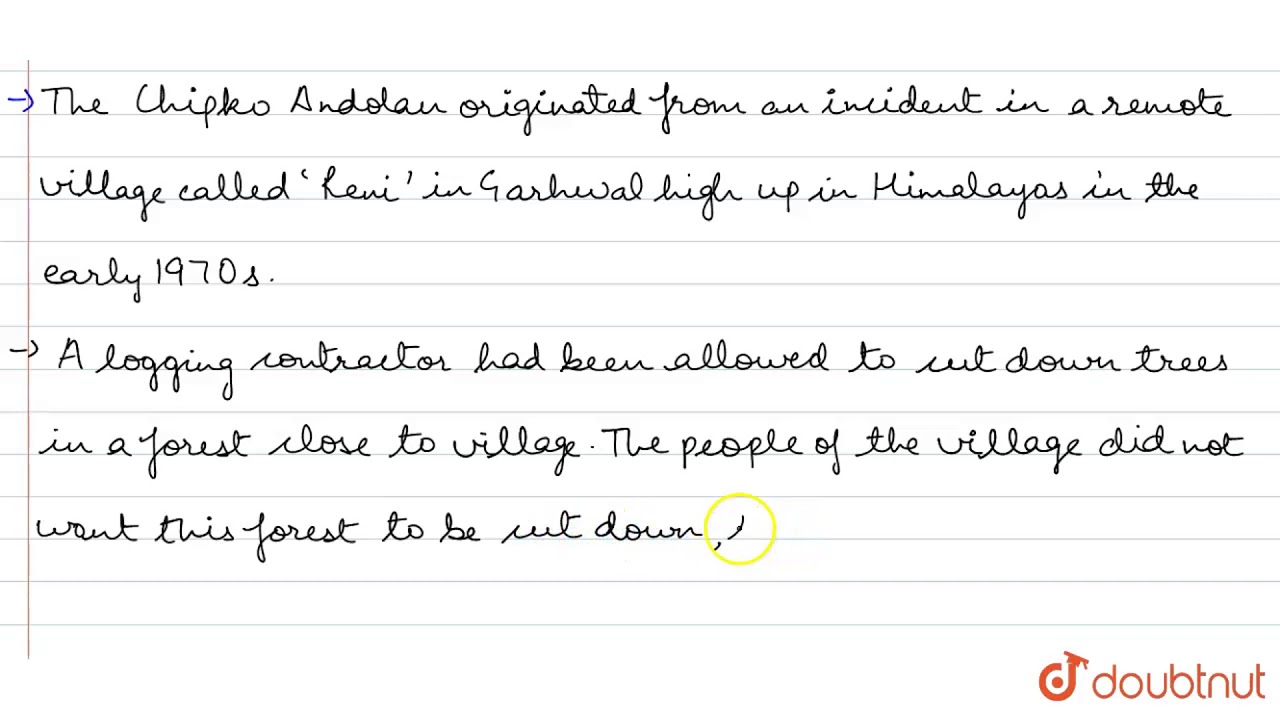 → The Chipko Andolan originated from an incident in a remote
village called 'Reni' in Garhwal high up in Himalayas in the
early 1970s.
→ A logging contractor had been allowed to cut down trees
in a forest close to village. The people of the village did not
want this forest to be cut down,
doubtnut